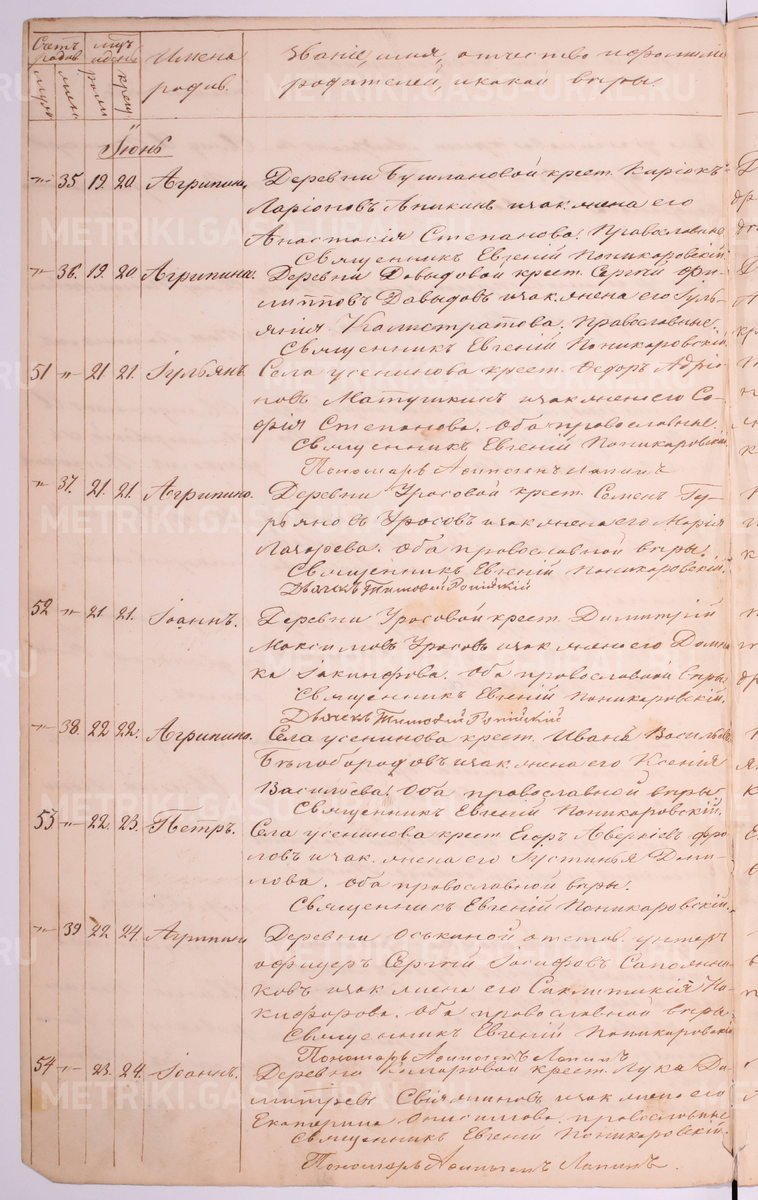 Счетъ родив. | мѣс. и день | Имена родив. | Званіе, имя, отчество и фамилія
муж. | жен. | рожд. | крещ. | родителей, и какой вѣры.
Іюнь
"- 35 19. 20. Агрипина, Деревни Бушлановой крест.
Ларіоновъ Аникинъ и зак. жена его
Анастасія Степанова. Православные
Священникъ Евгеній Поникаровскій.
"- 36. 19. 20 Агрипина. Деревни Давыдовой крест. Сергій Фи-
липповъ Давыдовъ и зак. жена его Іуль-
янія Калистратова. православные.
Священникъ Евгеній Поникаровскій.
51 -"- 21. 21. Іульянъ. Села усенинова крест. Ѳедоръ Адріа-
новъ Матушкинъ и зак. жена его Со-
фія Степанова. Оба православные.
Священникъ Евгеній Поникаровскій
Пономарь Лапинъ
"- 37. 21. 21. Агрипина. Деревни Уросовой крест. Семенъ Гу-
рьяновъ Уросовъ и зак. жена его Марія
Лазарева. Оба православной вѣры.
Священникъ Евгеній Поникаровскій.
Дьячекъ Тимофей
52 -"- 21 21. Іоаннъ. Деревни Уросовой крест. Димитрій
Максимовъ Уросовъ и зак. жена его Домни-
ка Іакинфова. Оба православной вѣры
Священникъ Евгеній Поникаровскій.
Дьячекъ Тимофей
-"- 38. 22 22. Агрипина. Села усенинова крест. Иванъ Васильевъ
Бѣлобородовъ и зак. жена его Ксенія
Василіева. Оба православной вѣры
Священникъ Евгеній Поникаровскій.
53 -"- 22. 23. Петръ. Села усенинова крест. Егоръ Аверкіевъ Фро-
ловъ и зак. жена его Іустинья Дани-
лова. Оба православной вѣры.
Священникъ Евгеній Поникаровскій.
"- 39 22. 24. Агрипина Деревни Оськиной отстав. унтеръ
офицеръ Сергій Іосифовъ Сапожни-
ковъ и зак. жена его Ни-
кифорова. Оба православной вѣры
Священникъ Евгеній Поникаровскій
Пономарь Лапинъ
54 -"- 23. 24. Іоаннъ. Деревни крест. Лука Ди-
митріевъ и зак. жена его
Екатерина Онисимова. православные
Священникъ Евгеній Поникаровскій.
Пономарь Лапинъ.
METRIKI.GASO-URAL.RU